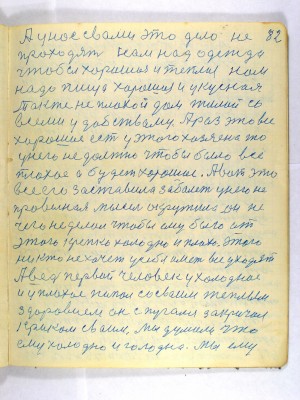 А у нас с вами это дело не 82
проходят нам над одежда
чтобы хорошая и теплая нам
надо пища хорошая и укусная
также не плохой дом жилой со
всеми удобствами. А раз это все
хорошее есть у этого хозяена то
у него не должно чтобы было все
плохое а будет хорошое. А вот это
все его заставила заболеть у него не
провелная мысел окружила он не
чего неделал чтобы ему было от
этого крепко холодно и плохо. Этого
никто не хочет у себя иметь все уходят
А вед первой человек у холодное
и у плохое попал со своим теплым
здоровием он с пугался закричал
криком своим, мы думали что
ему холодно и голодно. Мы ему